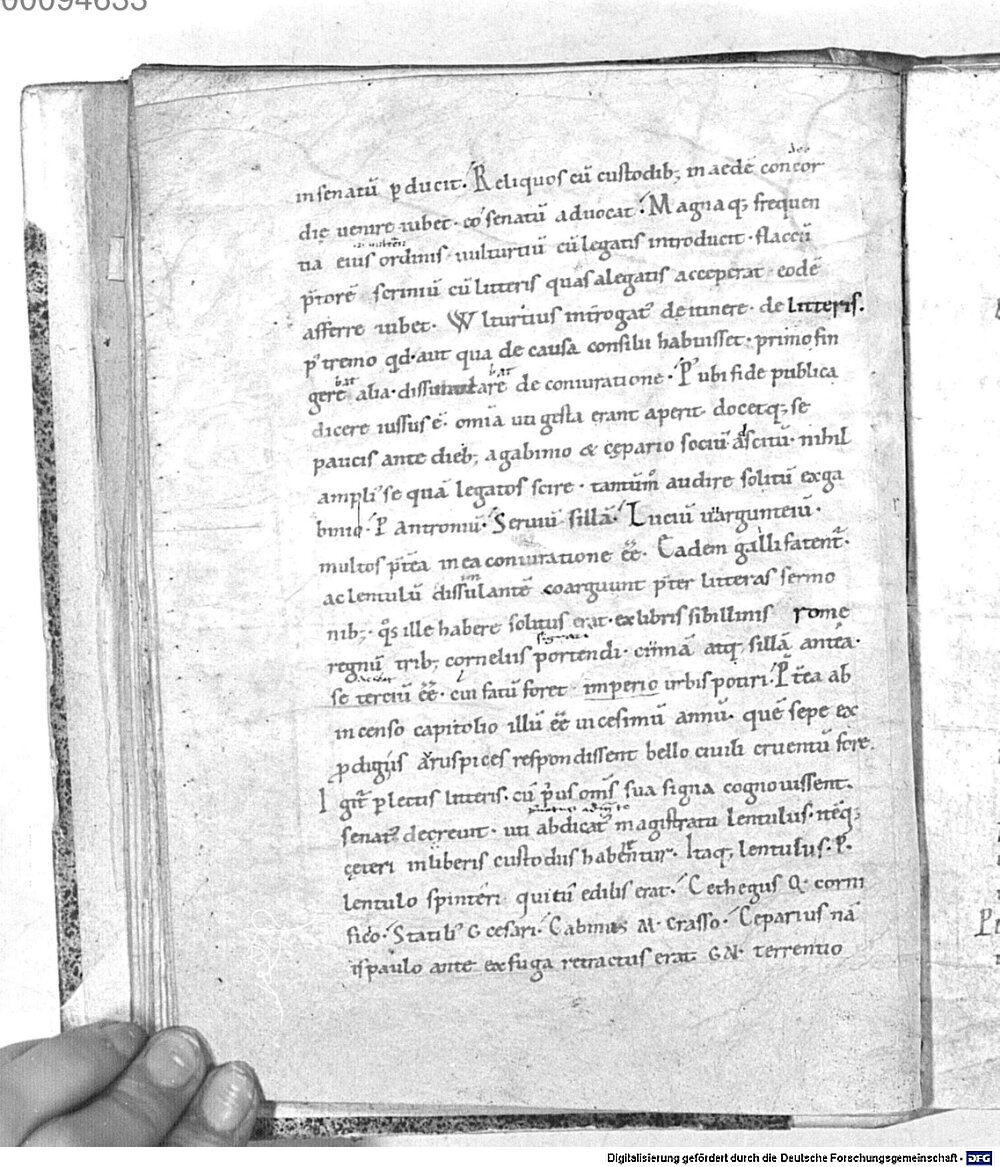 00094633
in senatū ꝑducit. Reliquos cū custodib; in aedē concor
dię venire iubet. eo senatū aduocat. Magnaq; frequen
tia eius ordinis uulturtiū cū legatis introducit. flaccū
p̄torē scriniū cū litteris quas alegatis acceperat eodē
afferre iubet. Wlturtius int̄rogat᷒ de itinere. de litteris.
p᷒tremo qd. aut qua de causa consilii habuisset. primo fin
gerē alia. dissimularē de coniuratione. P᷒ ubi fide publica
dicere iussus ē. omīa uti gesta erant aperit docetq; se
paucis ante dieb; agabinio & cępario sociū ascitū. nihil
ampli᷒ se quā legatos scire. tantūm̊ audire solitū exga
binio. P Antroniū. Seruiū sillā. Luciū uargunteiū.
multos p̄tea in ea coniuratione ēē. Eadem galli fatent᷒.
ac lentulū dissulantē coarguunt p̄ter litteras sermo
nib;. q̊s ille habere solitus erat. ex libris sibillinis rome
regnū trib; cornelius portendi. cinnā atq; sillā antea.
se terciū ēē. cui fatū foret imperio urbis potiri. P̄tea ab
incenso capitolio illū ēē uicesimū annū. quē sepe ex
ꝓdigiis aruspices respondissent bello ciuili cruentū fore.
Igit᷒ ꝑlectis litteris. cū p̄us om̄s sua signa cognouissent.
senat᷒ decreuit. uti abdicat᷒ magistratu lentulus. itēq;
cęteri in liberis custodiis habentur. Itaq; lentulus. P.
lentulo spinteri qui tū edilis erat. Cethegus Q. corni
fico. Statili᷒ G cesari. Gabinius M. crasso. Ceparius nā
is paulo ante ex fuga retractus erat. GN. terrentio
Digitalisierung gefördert durch die Deutsche Forschungsgemeinschaft - DFG